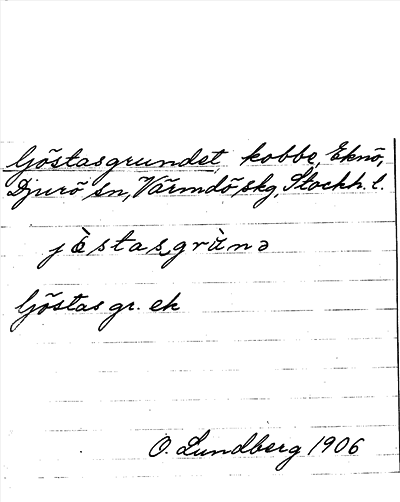 Göstasgrundet, kobbe, Eknö,
Djurö sn, Värmdö skg, Stockh. l.
jö̀stasgrùnə
Göstasgr. ek
O. Lundberg 1906